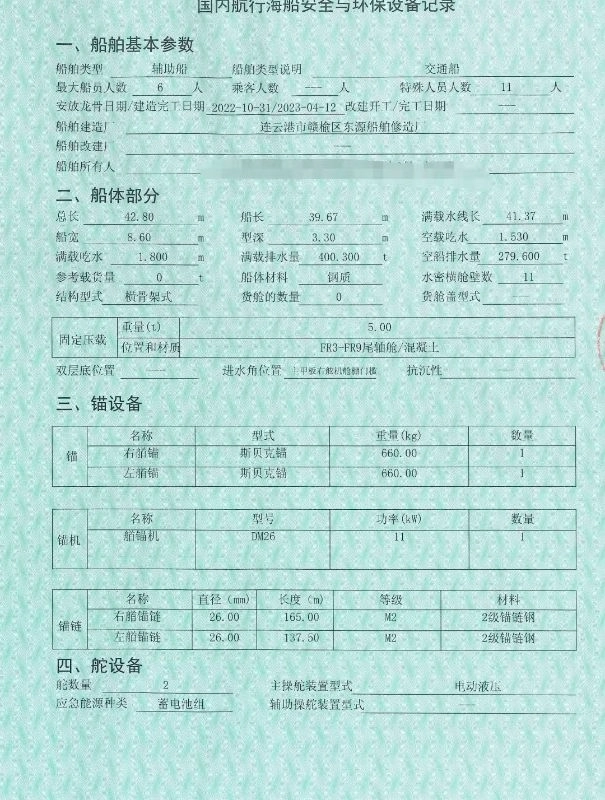 国内航行海船安全与环保设备记录
一、船舶基本参数
船舶类型 辅助船 船舶类型说明 交通船
最大船员人数 6 人 乘客人数 --- 人 特殊人员人数 11 人
安放龙骨日期/建造完工日期 2022-10-31/2023-04-12 改建开工/完工日期 ---
船舶建造厂 连云港市赣榆区东源船舶修造厂
船舶改建厂 ---
船舶所有人
二、船体部分
总长 42.80 m 船长 39.67 m 满载水线长 41.37 m
船宽 8.60 m 型深 3.30 m 空载吃水 1.530 m
满载吃水 1.800 m 满载排水量 400.300 t 空船排水量 279.600 t
参考载货量 0 t 船体材料 钢质 水密横舱壁数 11
结构型式 横骨架式 货舱的数量 0 货舱盖型式 ---
固定压载 重量(t) 5.00
位置和材质 FR3-FR9尾轴舱/混凝土
双层底位置 --- 进水角位置 主甲板右舷机舱棚门槛 抗沉性
三、锚设备
锚 名称 型式 重量(kg) 数量
右艏锚 斯贝克锚 660.00 1
左艏锚 斯贝克锚 660.00 1
锚机 名称 型号 功率(kW) 数量
艏锚机 DM26 11 1
锚链 名称 直径 (mm) 长度 (m) 等级 材料
右艏锚链 26.00 165.00 M2 2级锚链钢
左艏锚链 26.00 137.50 M2 2级锚链钢
四、舵设备
舵数量 2 主操舵装置型式 电动液压
应急能源种类 蓄电池组 辅助操舵装置型式 ---